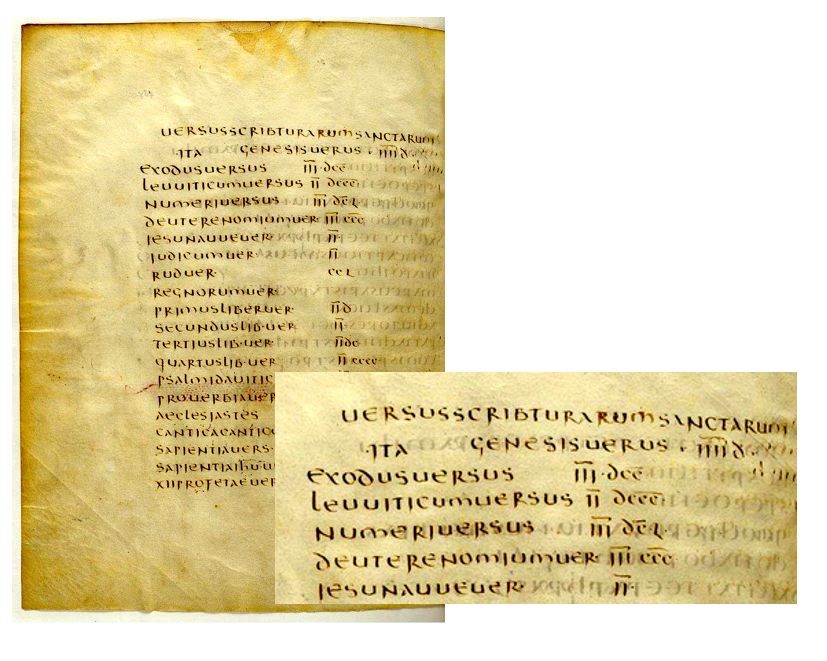 UERSUSSCRIBTURARUMSANCTARUM
ITA GENESISUERUS · IIIId
EXODUSUERSUS III·dcc
LEUUITICUMUERSUS II dccc
NUMERIUERSUS III dcL
DEUTERENOMIUMUER III ccc
IESUNAUUEUER· II·
IUDICUMUER· II
RUDUER· ccL
REGNORUMUER
PRIMUSLIBERUER· IId
SECUNDUSLIB·UER II·
TERTIUSLIB·UER IIdc
QUARTUSLIB·UER II cccc
PSALMIDAUITIC
PROUERBIAUER
AECLESIASTES
CANTICACANTIC
SAPIENTIAUERS·
SAPIENTIAIHU
XIIPROFETAEUER
UERSUSSCRIBTURARUMSANCTARUM
ITA GENESISUERUS · IIIId
EXODUSUERSUS III·dcc
LEUUITICUMUERSUS II dccc
NUMERIUERSUS III dcL·
DEUTERENOMIUMUER· III ccc
IESUNAUUEUER· II·